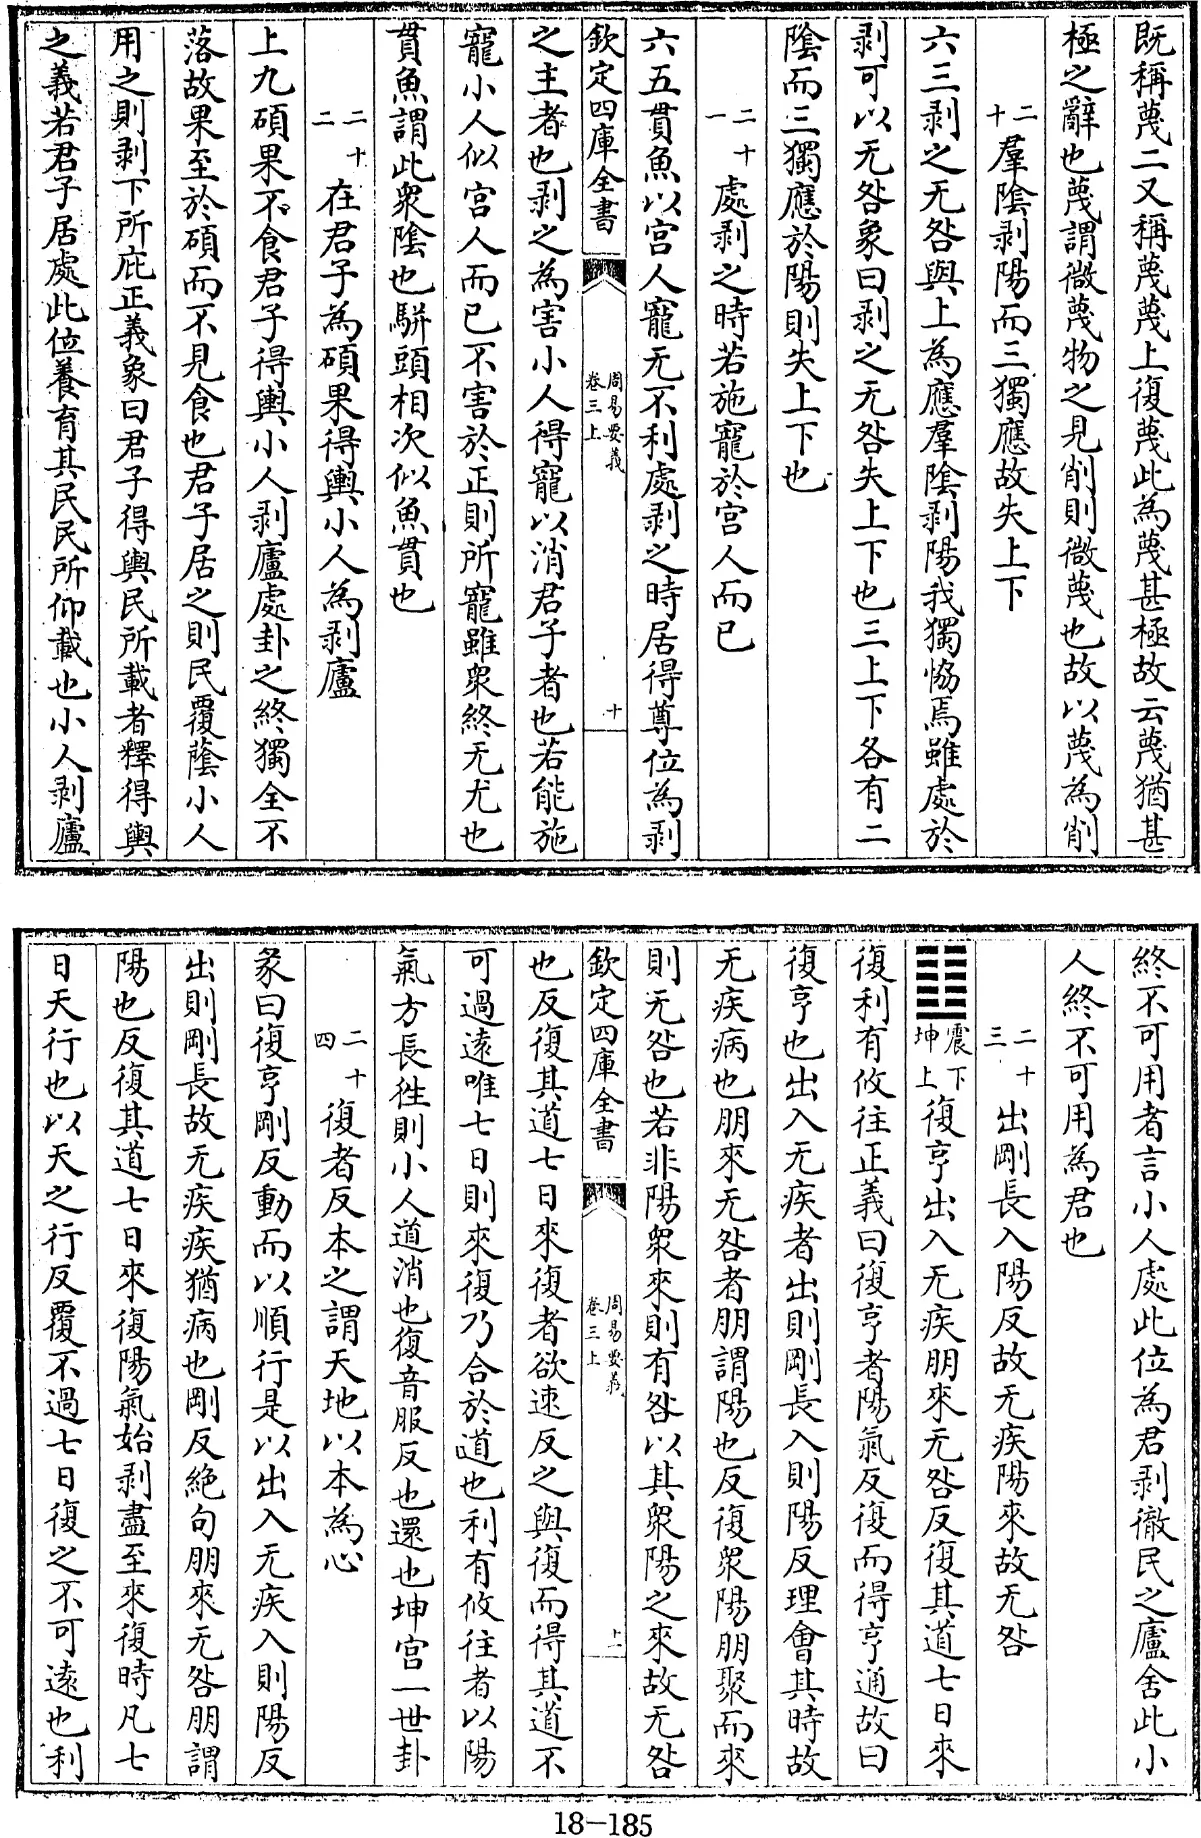 既稱蔑二又稱蔑蔑上復蔑此為蔑甚極故云蔑猶甚
極之辭也蔑謂微蔑物之見削則微蔑也故以蔑為削
二十羣陰剥陽而三獨應故失上下
六三剥之无咎與上為應羣陰剥陽我獨恊焉雖處於
剥可以无咎象曰剥之无咎失上下也三上下各有二
陰而三獨應於陽則失上下也
二十一處剥之時若施寵於宫人而已
六五貫魚以宫人寵无不利處剥之時居得尊位為剥
欽定四庫全書
周易要義
卷三上
十
之主者也剥之為害小人得寵以消君子者也若能施
寵小人似宫人而已不害於正則所寵雖衆終无尤也
貫魚謂此衆陰也駢頭相次似魚貫也
二十二在君子為碩果得輿小人為剥廬
上九碩果不食君子得輿小人剥廬處卦之終獨全不
落故果至於碩而不見食也君子居之則民覆蔭小人
用之則剥下所庇正義象曰君子得輿民所載者釋得輿
之義若君子居處此位養育其民民所仰載也小人剥廬
終不可用者言小人處此位為君剥徹民之廬舍此小
人終不可用為君也
二十三出剛長入陽反故无疾陽來故无咎
震下
坤上
復亨出入无疾朋來无咎反復其道七日來
復利有攸往正義曰復亨者陽氣反復而得亨通故曰
復亨也出入无疾者出則剛長入則陽反理會其時故
无疾病也朋來无咎者朋謂陽也反復衆陽朋聚而來
則无咎也若非陽衆來則有咎以其衆陽之來故无咎
欽定四庫全書
周易要義
卷三上
十一
也反復其道七日來復者欲速反之與復而得其道不
可過遠唯七日則來復乃合於道也利有攸往者以陽
氣方長徃則小人道消也復音服反也還也坤宫一世卦
二十四復者反本之謂天地以本為心
彖曰復亨剛反動而以順行是以出入无疾入則陽反
出則剛長故无疾疾猶病也剛反絶句朋來无咎朋謂
陽也反復其道七日來復陽氣始剥盡至來復時凡七
日天行也以天之行反覆不過七日復之不可遠也利
18-185